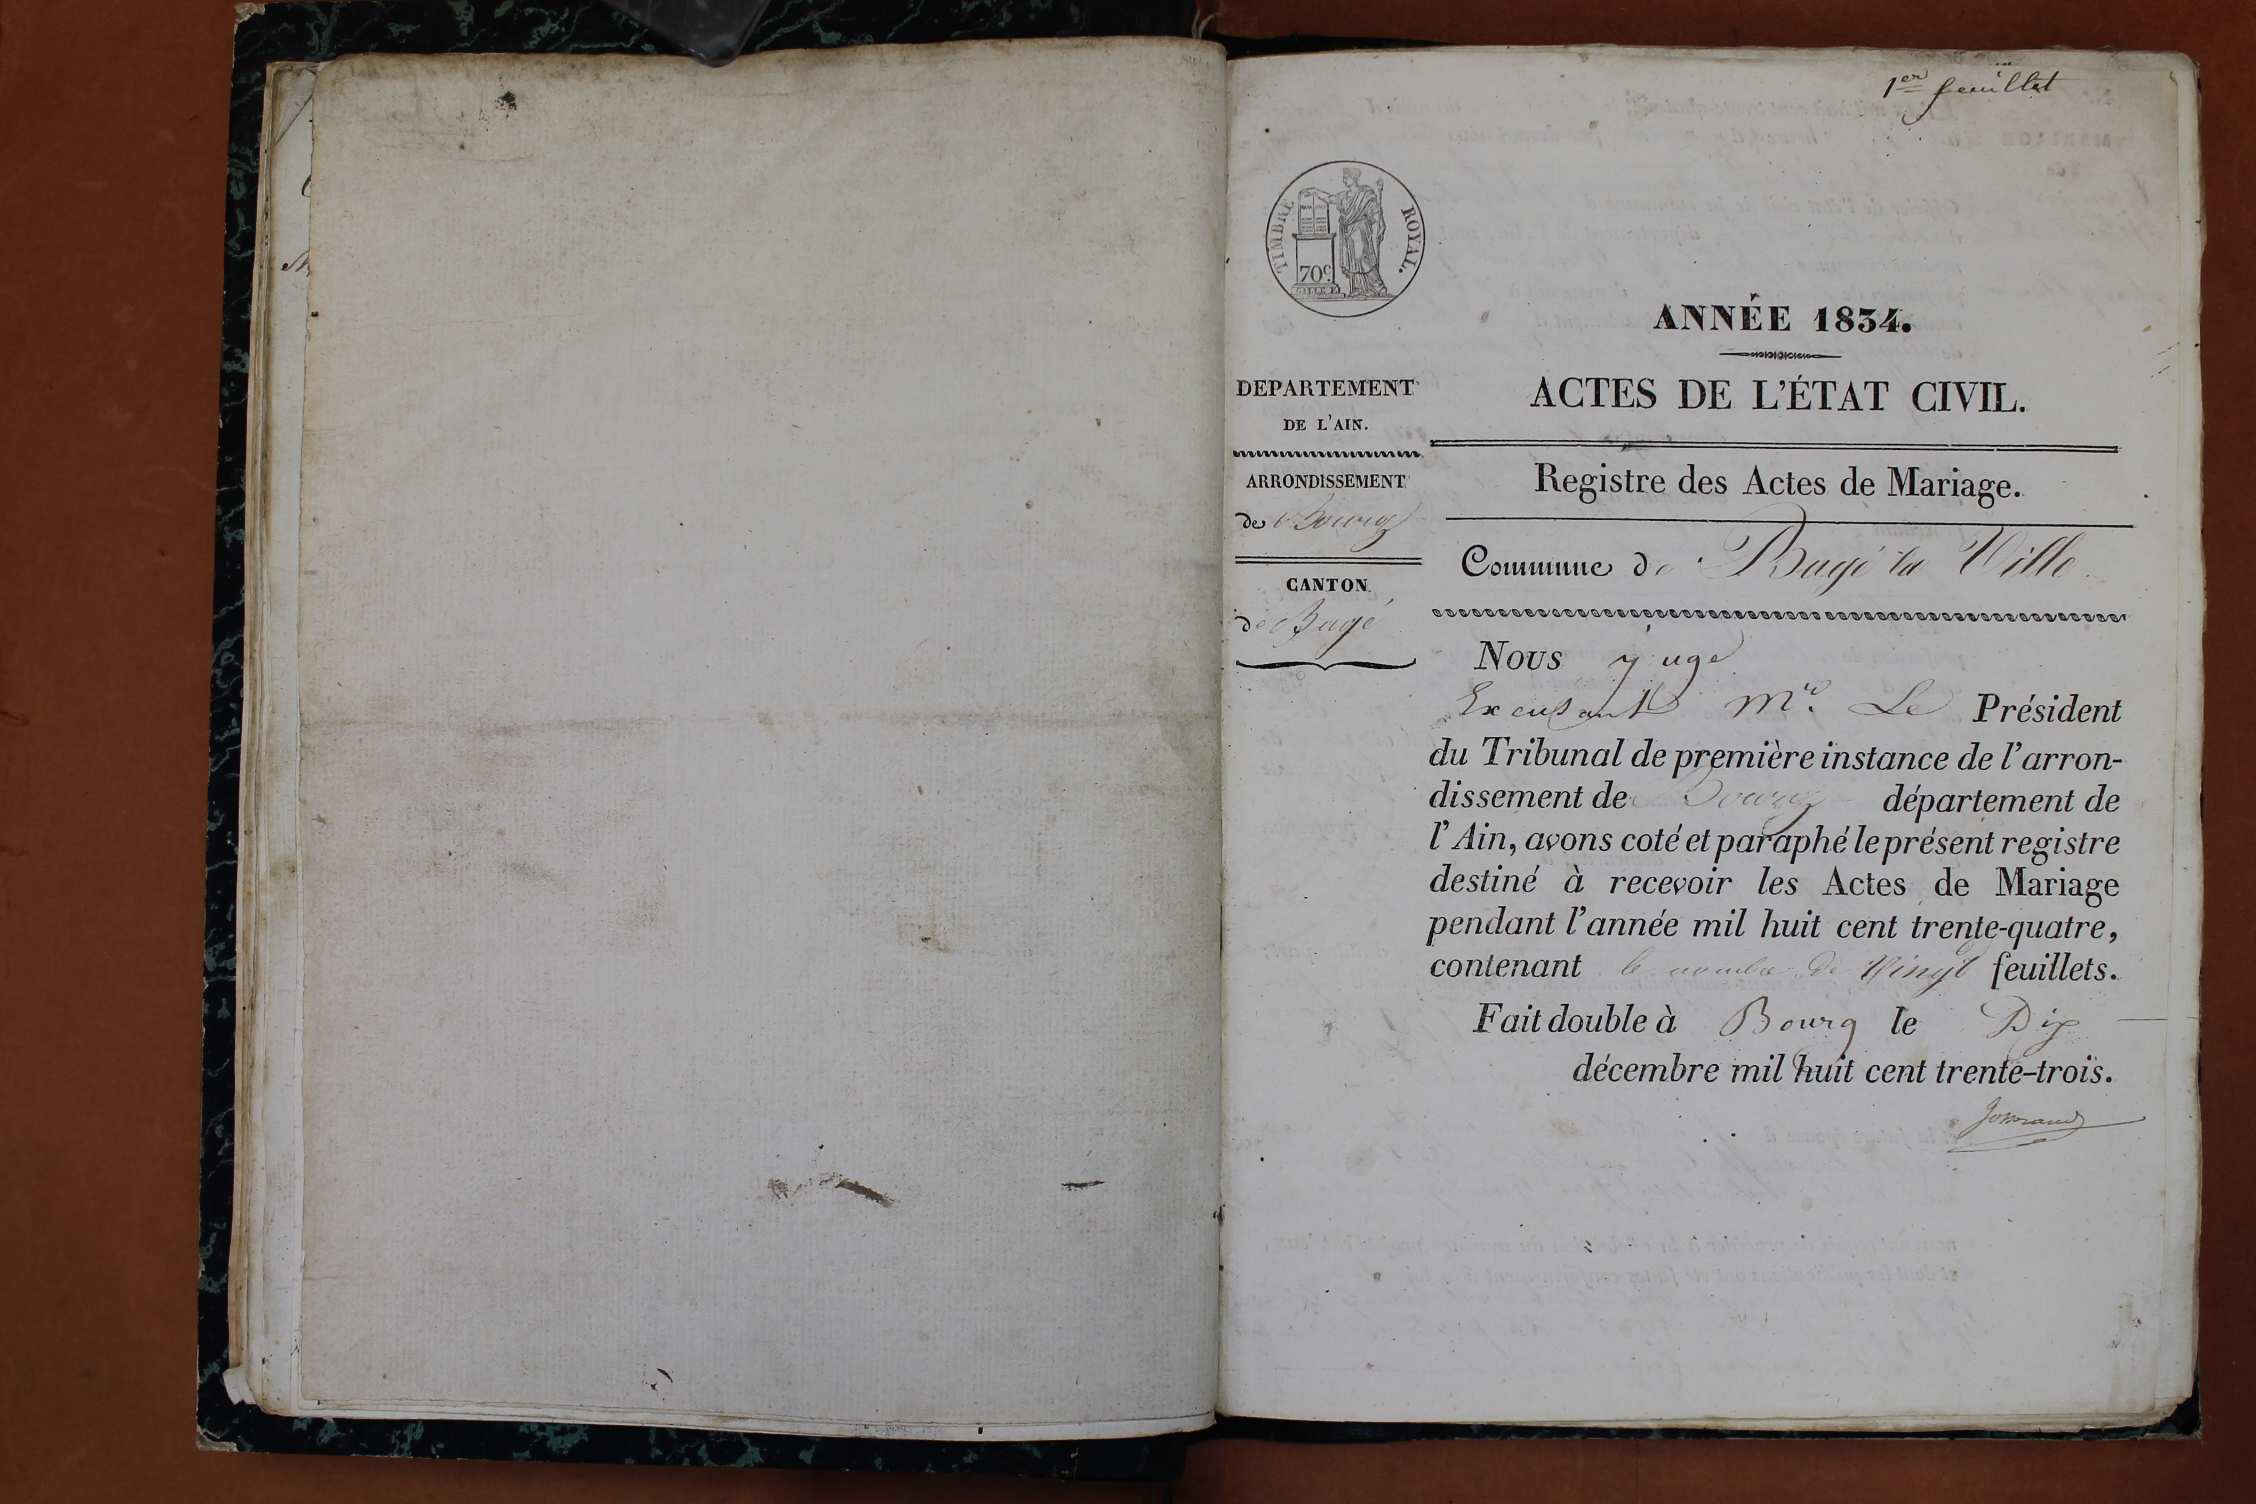 1er feuillet
TIMBRE ROYAL.
70c
ANNÉE 1834.
ACTES DE L'ÉTAT CIVIL.
DEPARTEMENT
DE L'AIN.
ARRONDISSEMENT
de Bourg
CANTON
de Bagé
Registre des Actes de Mariage.
Commune de Bagé la Ville
Nous juge
Excusant Mr. Le Président
du Tribunal de première instance de l'arron-
dissement de Bourg département de
l'Ain, avons coté et paraphé le présent registre
destiné à recevoir les Actes de Mariage
pendant l'année mil huit cent trente-quatre,
contenant le nombre de Vingt feuillets.
Fait double à Bourg le Dix
décembre mil huit cent trente-trois.